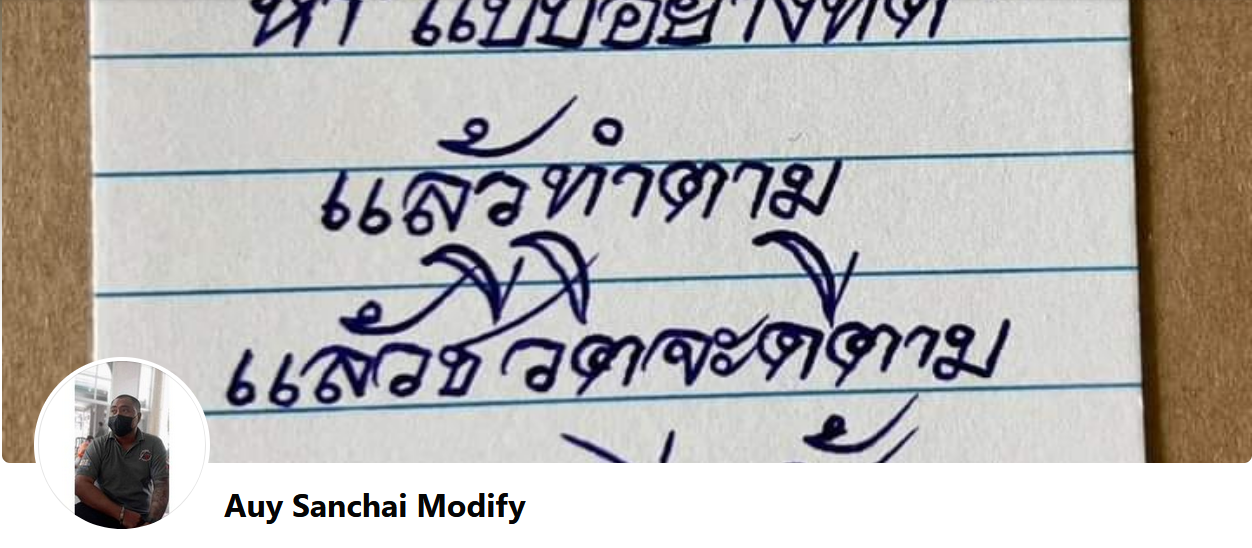 หา แบบอย่างที่ดี
แล้วทำตาม
แล้วชีวิตจะดีตาม
Auy Sanchai Modify